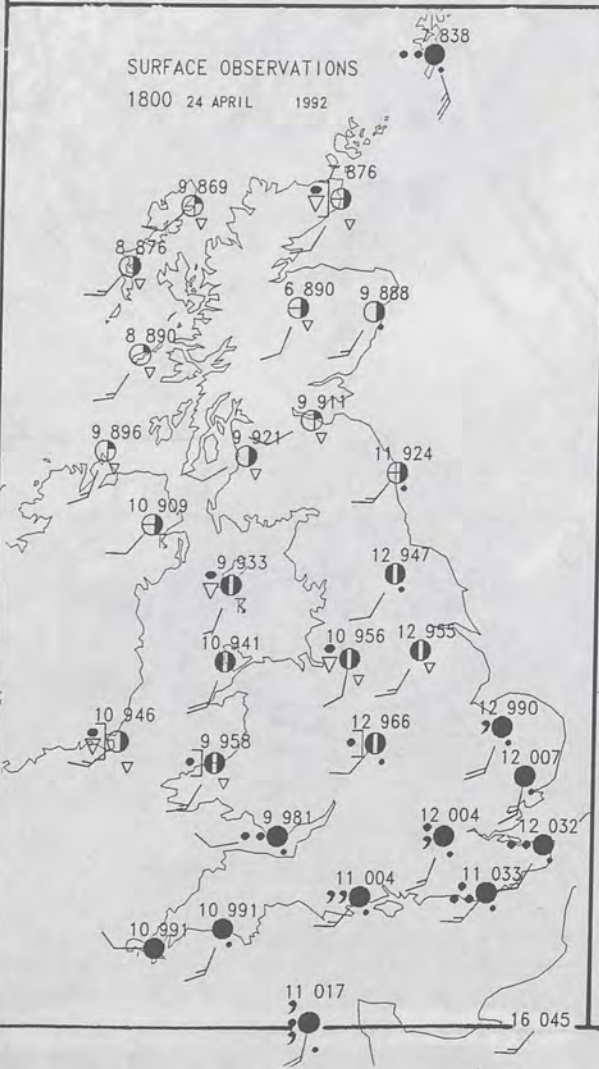 7 838
SURFACE OBSERVATIONS
1800 24 APRIL 1992
876
9 869
8 876
6 890
9 888
8 890
9 911
9 896
9 921
11 924
10 909
9 933
12 947
10 941
10 956
12 955
10 946
9 958
12 966
12 990
12 007
9 981
12 004
12 032
11 004
11 033
10 991
10 991
11 017
16 045